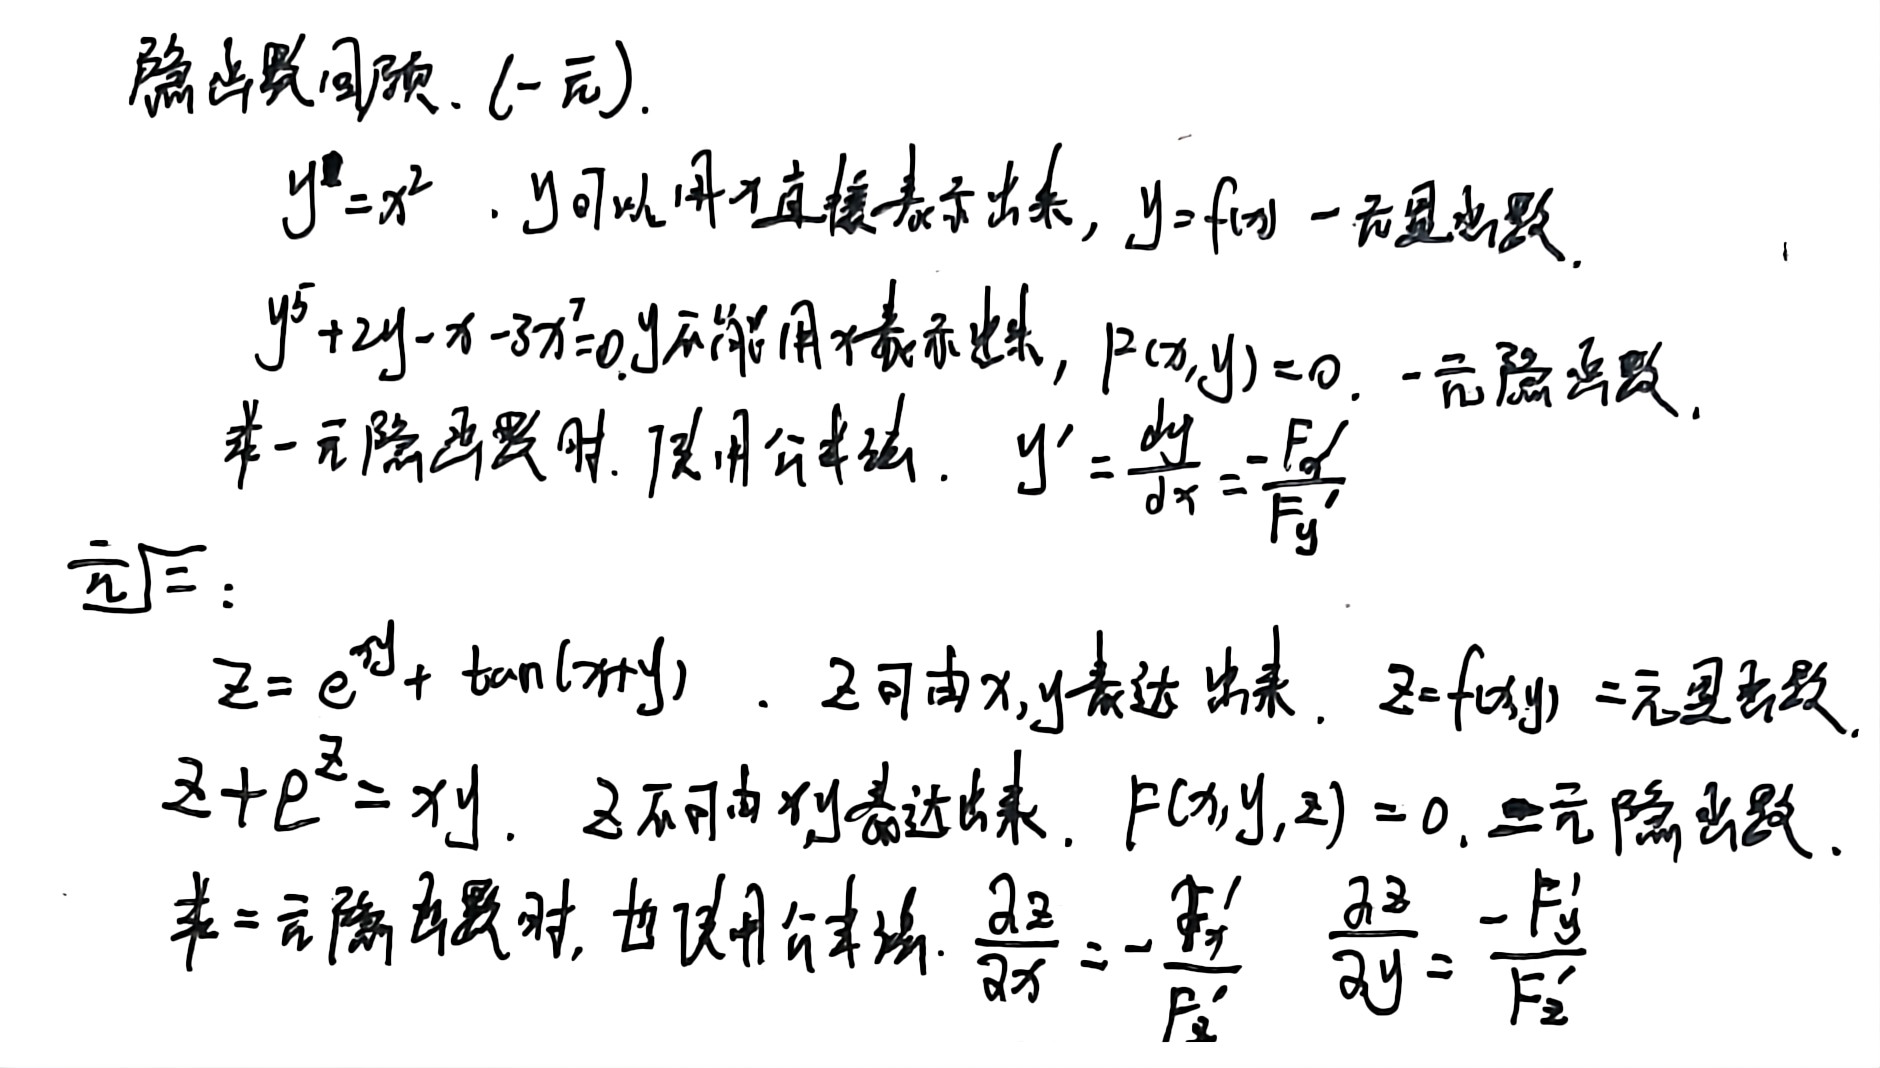 隐函数回顾.(一元).
y=x². y可以用x直接表示出来, y=f(x) 一元显函数.
y⁵+2y-x-3x⁷=0. y不能用x表示出来, F(x,y)=0. 一元隐函数.
求一元隐函数时. 使用公式法. y'=dy/dx=-Fx'/Fy'
二元:
z=e^xy+tan(x+y). z可由x,y表达出来. z=f(x,y) 二元显函数.
z+e^z=xy. z不可由x,y表达出来. F(x,y,z)=0. 二元隐函数.
求二元隐函数时, 也使用公式法. ∂z/∂x=-Fx'/Fz' ∂z/∂y=-Fy'/Fz'